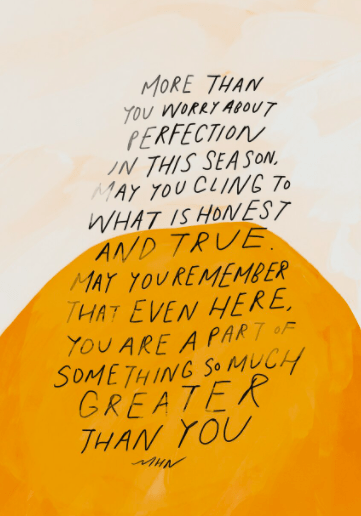 MORE THAN
YOU WORRY ABOUT
PERFECTION
IN THIS SEASON,
MAY YOU CLING TO
WHAT IS HONEST
AND TRUE.
MAY YOU REMEMBER
THAT EVEN HERE,
YOU ARE A PART OF
SOMETHING SO MUCH
GREATER
THAN YOU
MHN